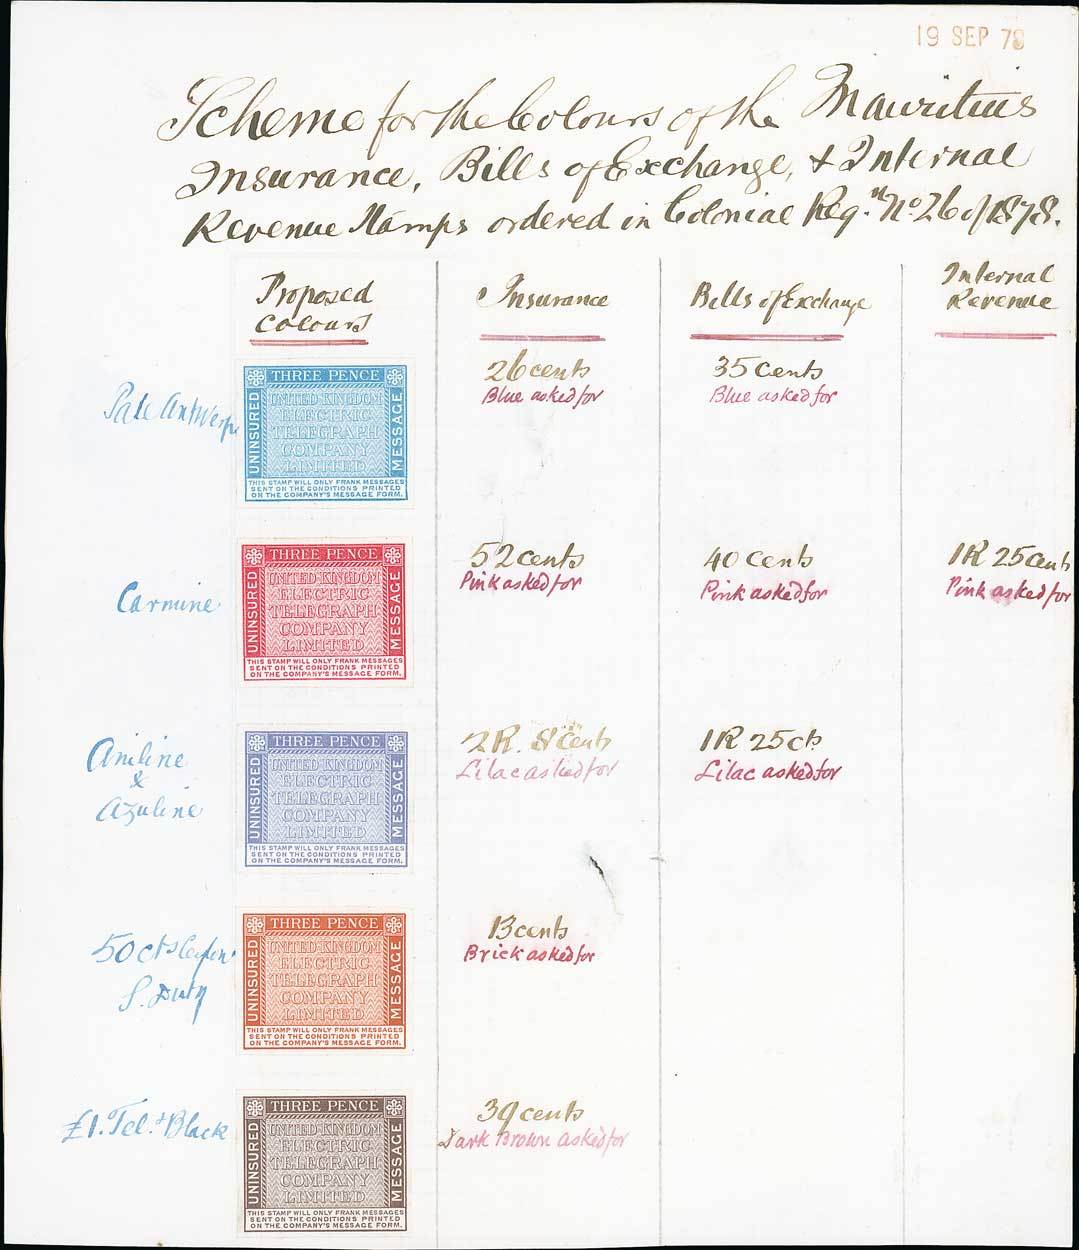 19 SEP 78
Scheme for the Colours of the Mauritius
Insurance, Bills of Exchange, & Internal
Revenue Stamps ordered in Colonial Reqn No 26 of 1878.
Proposed
Colours
Insurance
Bills of Exchange
Internal
Revenue
Pale Antwerp
THREE PENCE
UNINSURED
UNITED KINGDOM
ELECTRIC
TELEGRAPH
COMPANY
LIMITED
MESSAGE
THIS STAMP WILL ONLY FRANK MESSAGES
SENT ON THE CONDITIONS PRINTED
ON THE COMPANY'S MESSAGE FORM.
26 cents
Blue asked for
35 cents
Blue asked for
Carmine
THREE PENCE
UNINSURED
UNITED KINGDOM
ELECTRIC
TELEGRAPH
COMPANY
LIMITED
MESSAGE
THIS STAMP WILL ONLY FRANK MESSAGES
SENT ON THE CONDITIONS PRINTED
ON THE COMPANY'S MESSAGE FORM.
52 cents
Pink asked for
40 cents
Pink asked for
1R 25 cents
Pink asked for
Aniline
&
Azuline
THREE PENCE
UNINSURED
UNITED KINGDOM
ELECTRIC
TELEGRAPH
COMPANY
LIMITED
MESSAGE
THIS STAMP WILL ONLY FRANK MESSAGES
SENT ON THE CONDITIONS PRINTED
ON THE COMPANY'S MESSAGE FORM.
2R. 8 cents
Lilac asked for
1R 25 cts
Lilac asked for
50 cts Ceylon
S. Duty
THREE PENCE
UNINSURED
UNITED KINGDOM
ELECTRIC
TELEGRAPH
COMPANY
LIMITED
MESSAGE
THIS STAMP WILL ONLY FRANK MESSAGES
SENT ON THE CONDITIONS PRINTED
ON THE COMPANY'S MESSAGE FORM.
13 cents
Brick asked for
£1. Tel. & Black
THREE PENCE
UNINSURED
UNITED KINGDOM
ELECTRIC
TELEGRAPH
COMPANY
LIMITED
MESSAGE
THIS STAMP WILL ONLY FRANK MESSAGES
SENT ON THE CONDITIONS PRINTED
ON THE COMPANY'S MESSAGE FORM.
39 cents
Dark Brown asked for